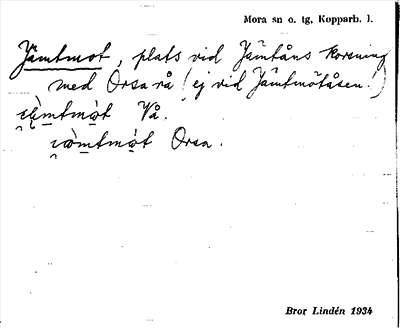 Mora sn o. tg, Kopparb. l.
Jämtmot, plats vid Jämtåns korsning
med Orsa rå (ej vid Jämtmötåsen!)
Vå.
Orsa.
Bror Lindén 1934